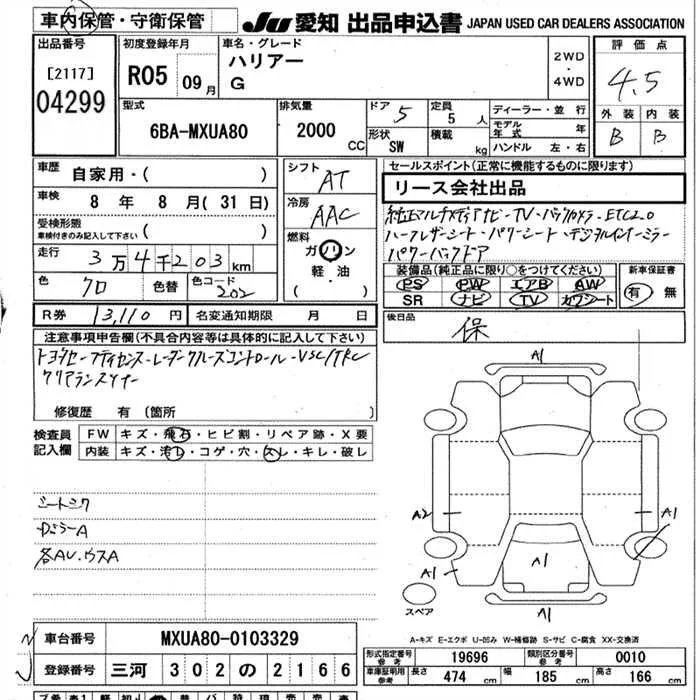 車内保管・守衛保管
JU 愛知 出品申込書 JAPAN USED CAR DEALERS ASSOCIATION
出品番号
[2117]
04299
初度登録年月
R05 09月
車名・グレード
ハリアー
G
2WD
・
4WD
評価点
4.5
外装 内装
B B
型式
6BA-MXUA80
排気量
2000 CC
ドア 5
形状 SW
定員 5 人
積載 kg
ディーラー・並行
モデル年式 年
ハンドル 左・右
車歴
自家用・( )
車検
8 年 8 月(31日)
受検形態
車検付きのみ記入して下さい ( )
走行
3万4千203km
色 クロ 色替 色コード 202
シフト AT
冷房 AAC
燃料
ガソリン
軽・油
( )
セールスポイント(正常に機能するものに限ります)
リース会社出品
純正マルチメディアナビ-TV-バックカメラ-ETC2.0
ハーフレザーシート-パワーシート-デジタルインナーミラー
パワーバックドア
装備品(純正品に限り○をつけてください)
PS PW エアB AW
SR ナビ TV カワシート
新車保証書
有 無
R券 13,110円 名変通知期限 月 日
後日品
保
注意事項申告欄(不具合内容等は具体的に記入して下さい)
トヨタセーフティセンス-レーダークルーズコントロール-VSC/TRC
クリアランスソナー
修復歴 有(箇所 )
検査員
記入欄
FW キズ・飛石・ヒビ割・リペア跡・X要
内装 キズ・汚レ・コゲ・穴・スレ・キレ・破レ
シートシワ
Dミラー A
各AU.ウスA
A1
A2
A1
A1
A1
A1
スペア
A-キズ E-エクボ U-凹み W-補修跡 S-サビ C-腐食 XX-交換済
車台番号 MXUA80-0103329
登録番号 三河 302 の 2166
型式指定番号 参考 19696 類別区分番号 参考 0010
車庫証明用 参考 長さ 474 cm 幅 185 cm 高さ 166 cm